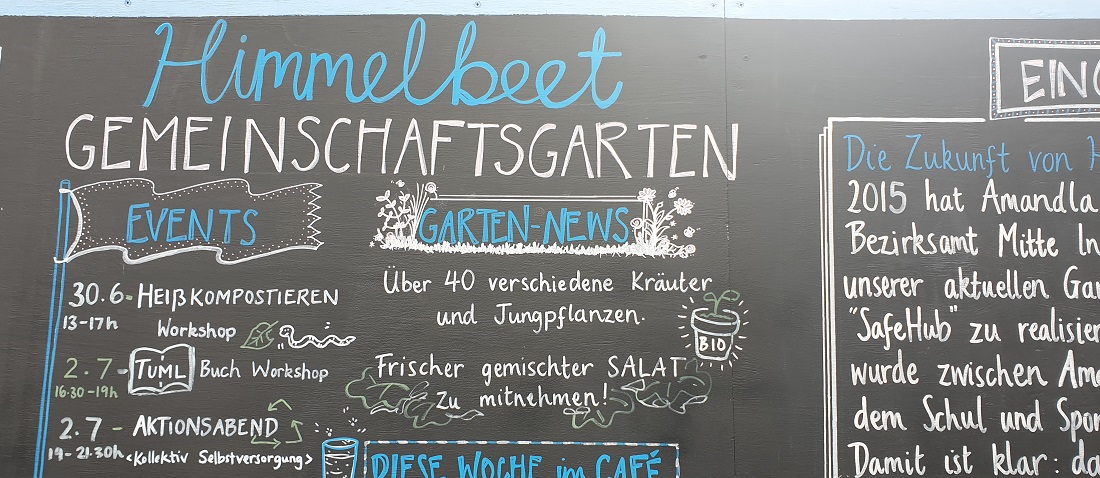 Himmelbeet
GEMEINSCHAFTSGARTEN
EVENTS
30.6-HEIßKOMPOSTIEREN
13-17h Workshop
2.7-TUML Buch Workshop
16:30-19h
2.7-AKTIONSABEND
19-21:30h <Kollektiv Selbstversorgung>
GARTEN-NEWS
Über 40 verschiedene Kräuter
und Jungpflanzen.
BIO
Frischer gemischter SALAT
zu mitnehmen!
DIESE WOCHE im CAFÉ
Die Zukunft von
2015 hat Amandla
Bezirksamt Mitte
unserer aktuellen
"SafeHub" zu
wurde zwischen
dem Schul und
Damit ist klar: